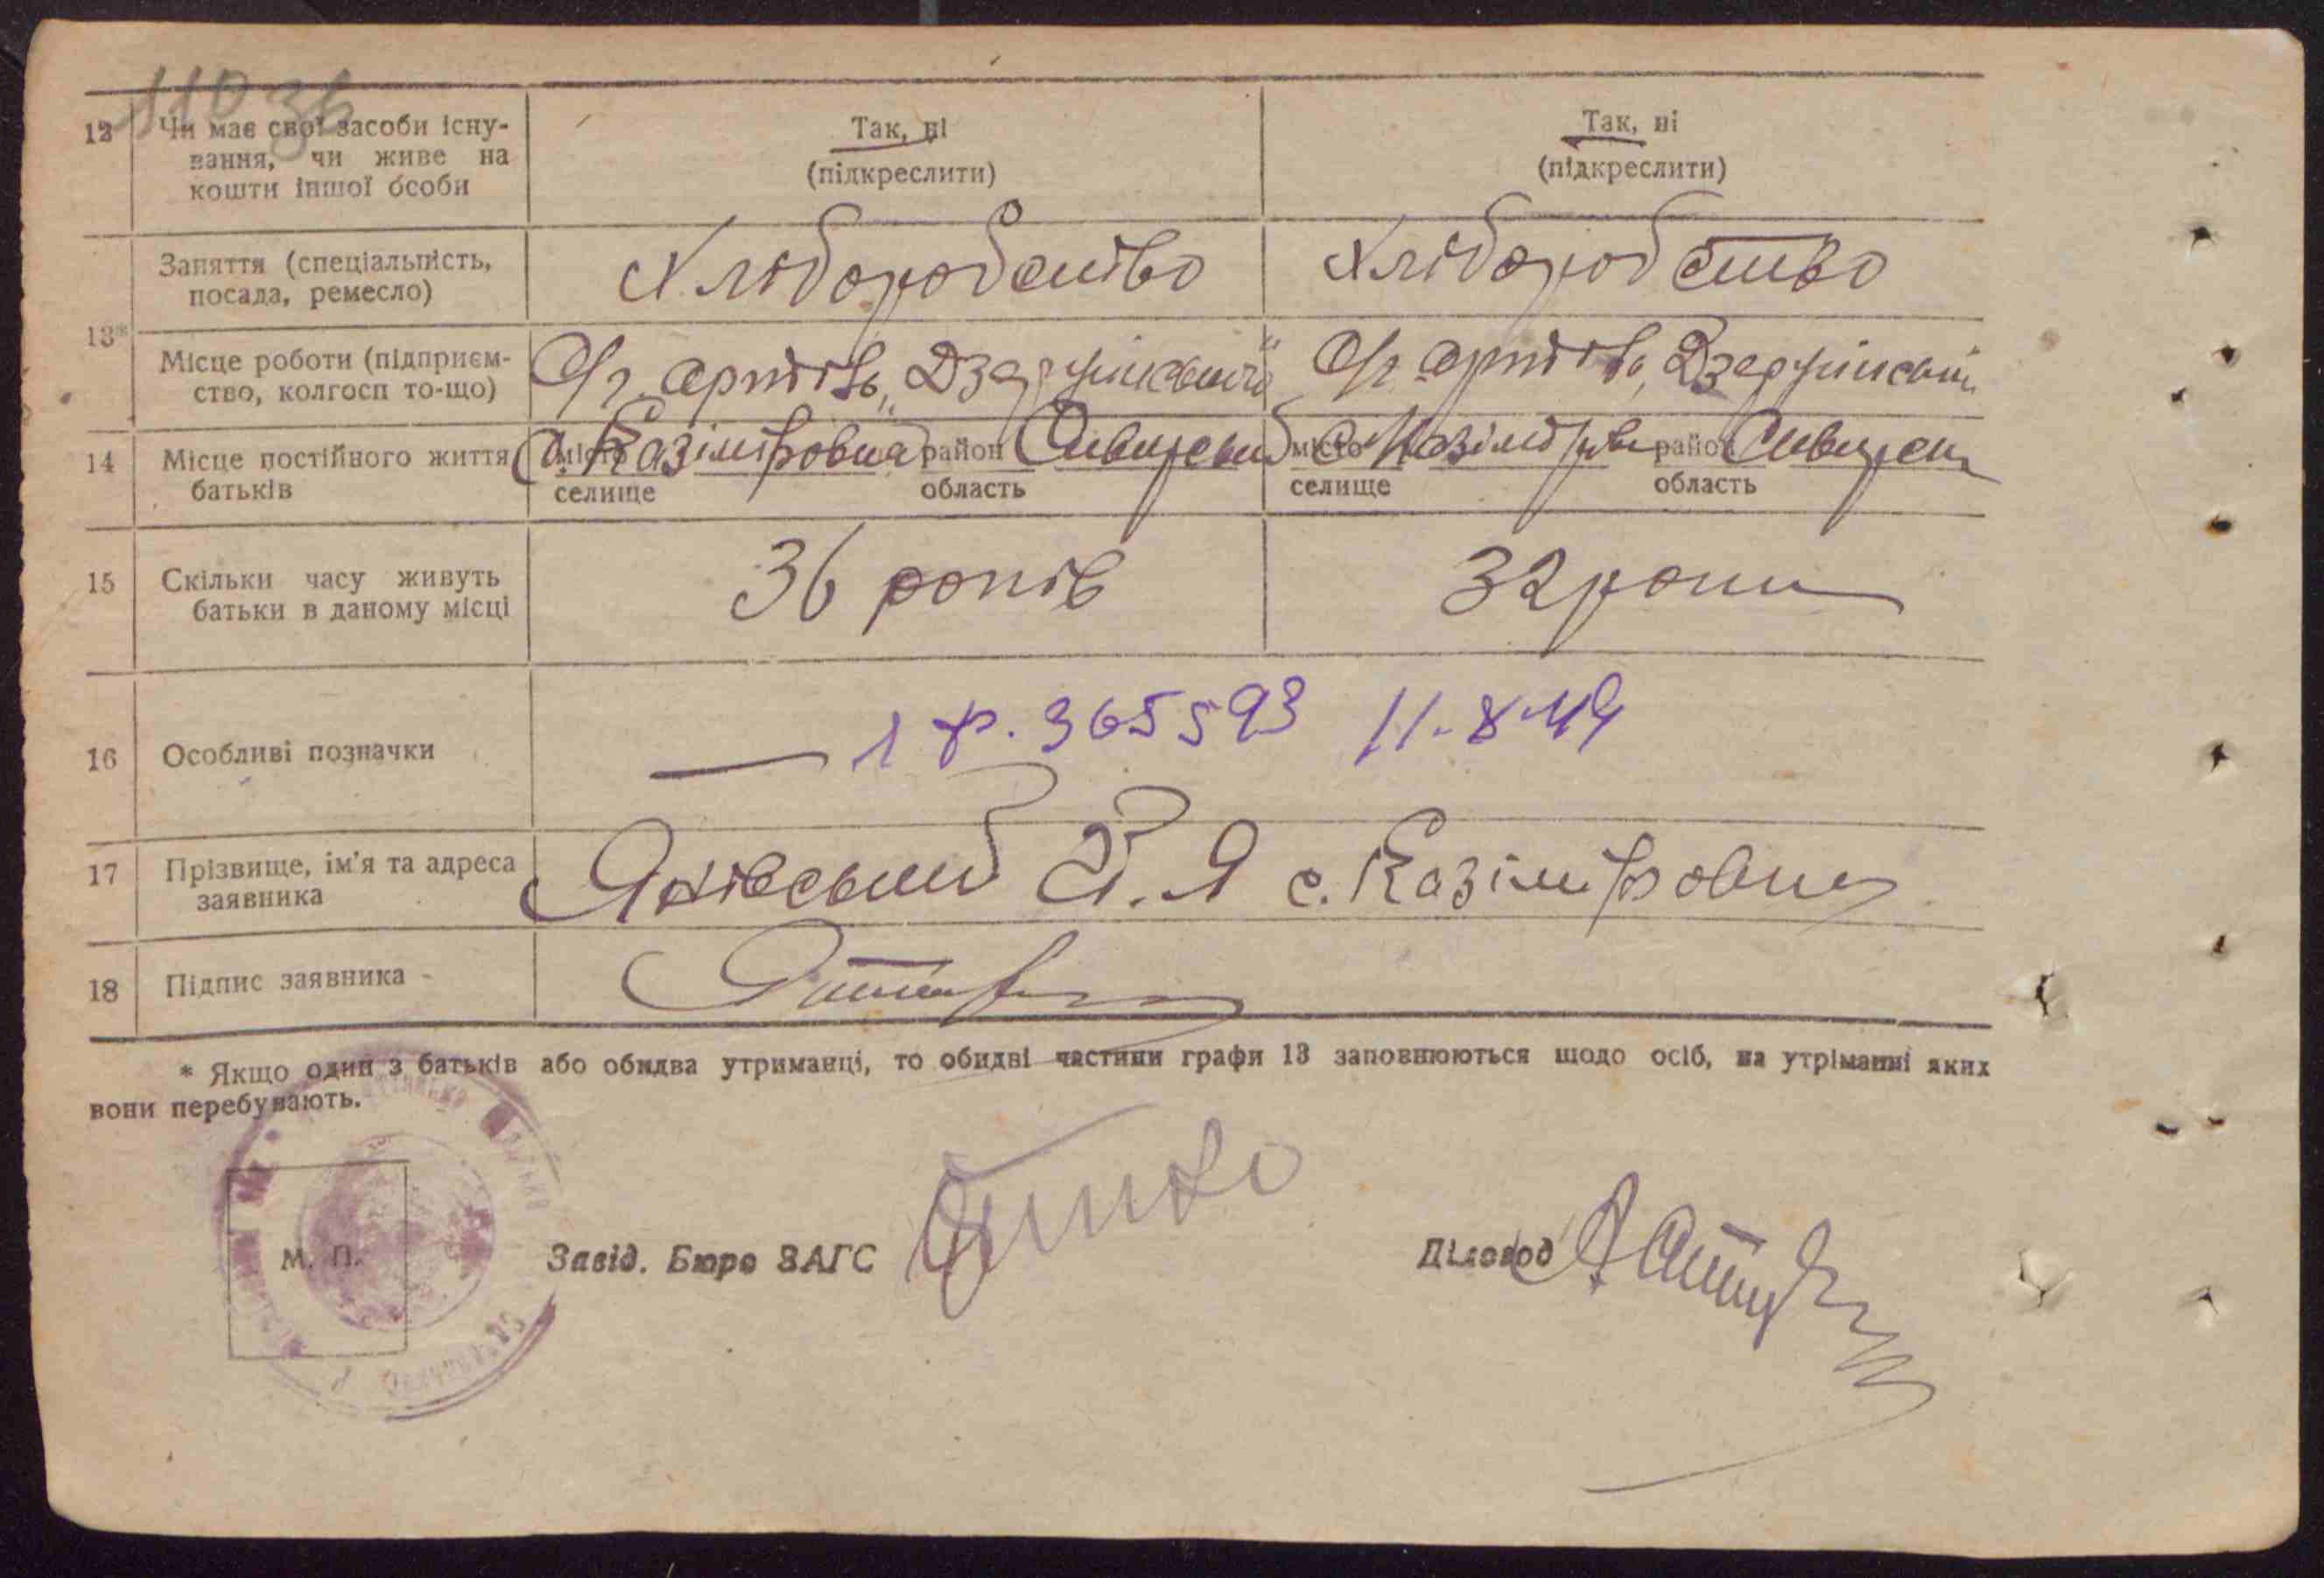 12 Чи має свої засоби існу-
вання, чи живе на
кошти іншої особи
Так, ні
(підкреслити)
Так, ні
(підкреслити)
13*
Заняття (спеціальність,
посада, ремесло)
Хлібородство
Хлібородство
Місце роботи (підприєм-
ство, колгосп то-що)
С/г. артіль „Дзержинського"
С/г артіль „Дзержинськ
14 Місце постійного життя
батьків
місто с. Казіміровка район
селище область
місто с Казімірівка район
селище область
15 Скільки часу живуть
батьки в даному місці
36 років
32 роки
16 Особливі позначки
— 1 р. 365593 11.8 44
17 Прізвище, ім'я та адреса
заявника
Янівський В. Я с. Казіміровка
18 Підпис заявника
* Якщо один з батьків або обидва утриманці, то обидві частини графи 13 заповнюються щодо осіб, на утріманні яких
вони перебувають.
М. П.
Завід. Бюро ЗАГС
Діловод